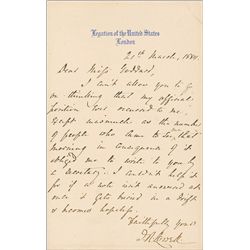 Legation of the United States
London
21st March, 1884.
Dear Miss Goddard,
I can't allow you to go
on thinking that my official
position was excused to me,
except inasmuch as the number
of people who came to see that
morning in consequence of it
obliged me to write to you by
a secretary. I couldn't help it
for if a note isn't answered at
once it gets buried in a drift
& becomes hopeless.
Faithfully yours
J.R. Lowell